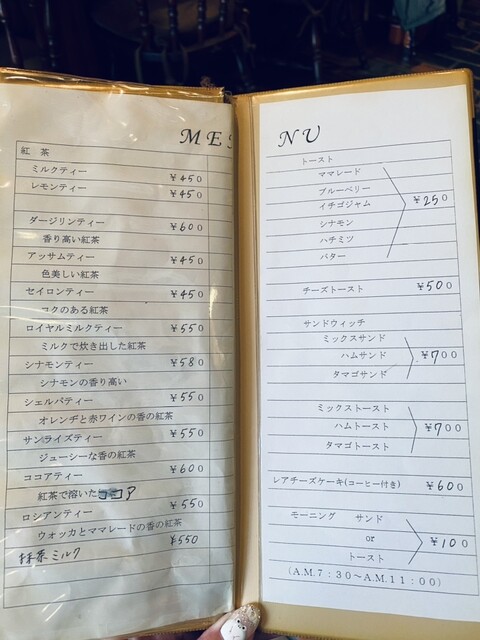 MENU
紅 茶
ミルクティー ¥450
レモンティー ¥450
ダージリンティー ¥600
香り高い紅茶
アッサムティー ¥450
色美しい紅茶
セイロンティー ¥450
コクのある紅茶
ロイヤルミルクティー ¥550
ミルクで炊き出した紅茶
シナモンティー ¥580
シナモンの香り高い
シェルパティー ¥550
オレンヂと赤ワインの香の紅茶
サンライズティー ¥550
ジューシーな香の紅茶
ココアティー ¥600
紅茶で溶いたココア
ロシアンティー ¥550
ウォッカとママレードの香の紅茶
抹茶ミルク ¥550
トースト
ママレード
ブルーベリー
イチゴジャム ¥250
シナモン
ハチミツ
バター
チーズトースト ¥500
サンドウィッチ
ミックスサンド
ハムサンド ¥700
タマゴサンド
ミックストースト
ハムトースト ¥700
タマゴトースト
レアチーズケーキ(コーヒー付き) ¥600
モーニング サンド
or ¥100
トースト
(A.M.7:30～A.M.11:00)